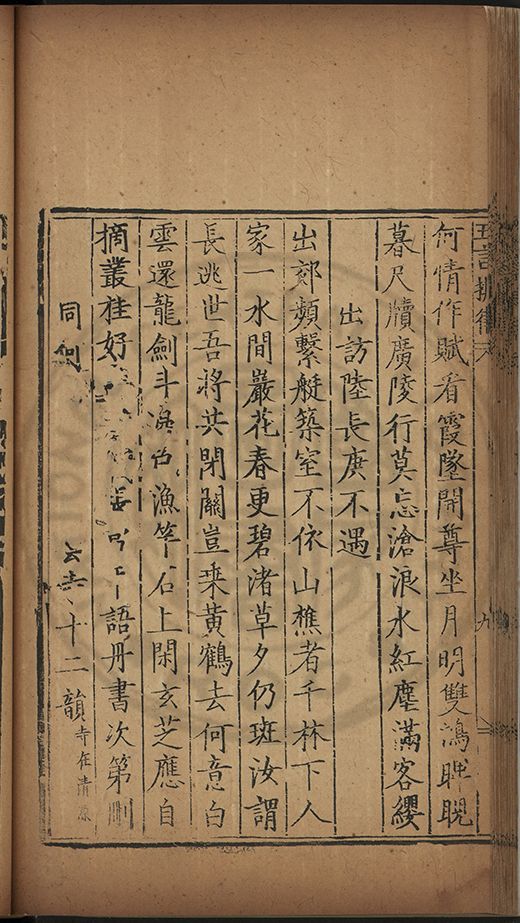 五言排律 九
何情作賦看霞墜開尊坐月明雙鴻睥睨
暮尺牘廣陵行莫忘滄浪水紅塵滿客纓
出訪陸長庚不遇
出郊頻繫艇築室不依山樵者千林下人
家一水間巖花春更碧渚草夕仍班汝謂
長逃世吾將共閉關豈乘黃鶴去何意白
雲還龍劍斗漁竿石上閑玄芝應自
摘叢桂好語丹書次第刪
同十二韻寺在清